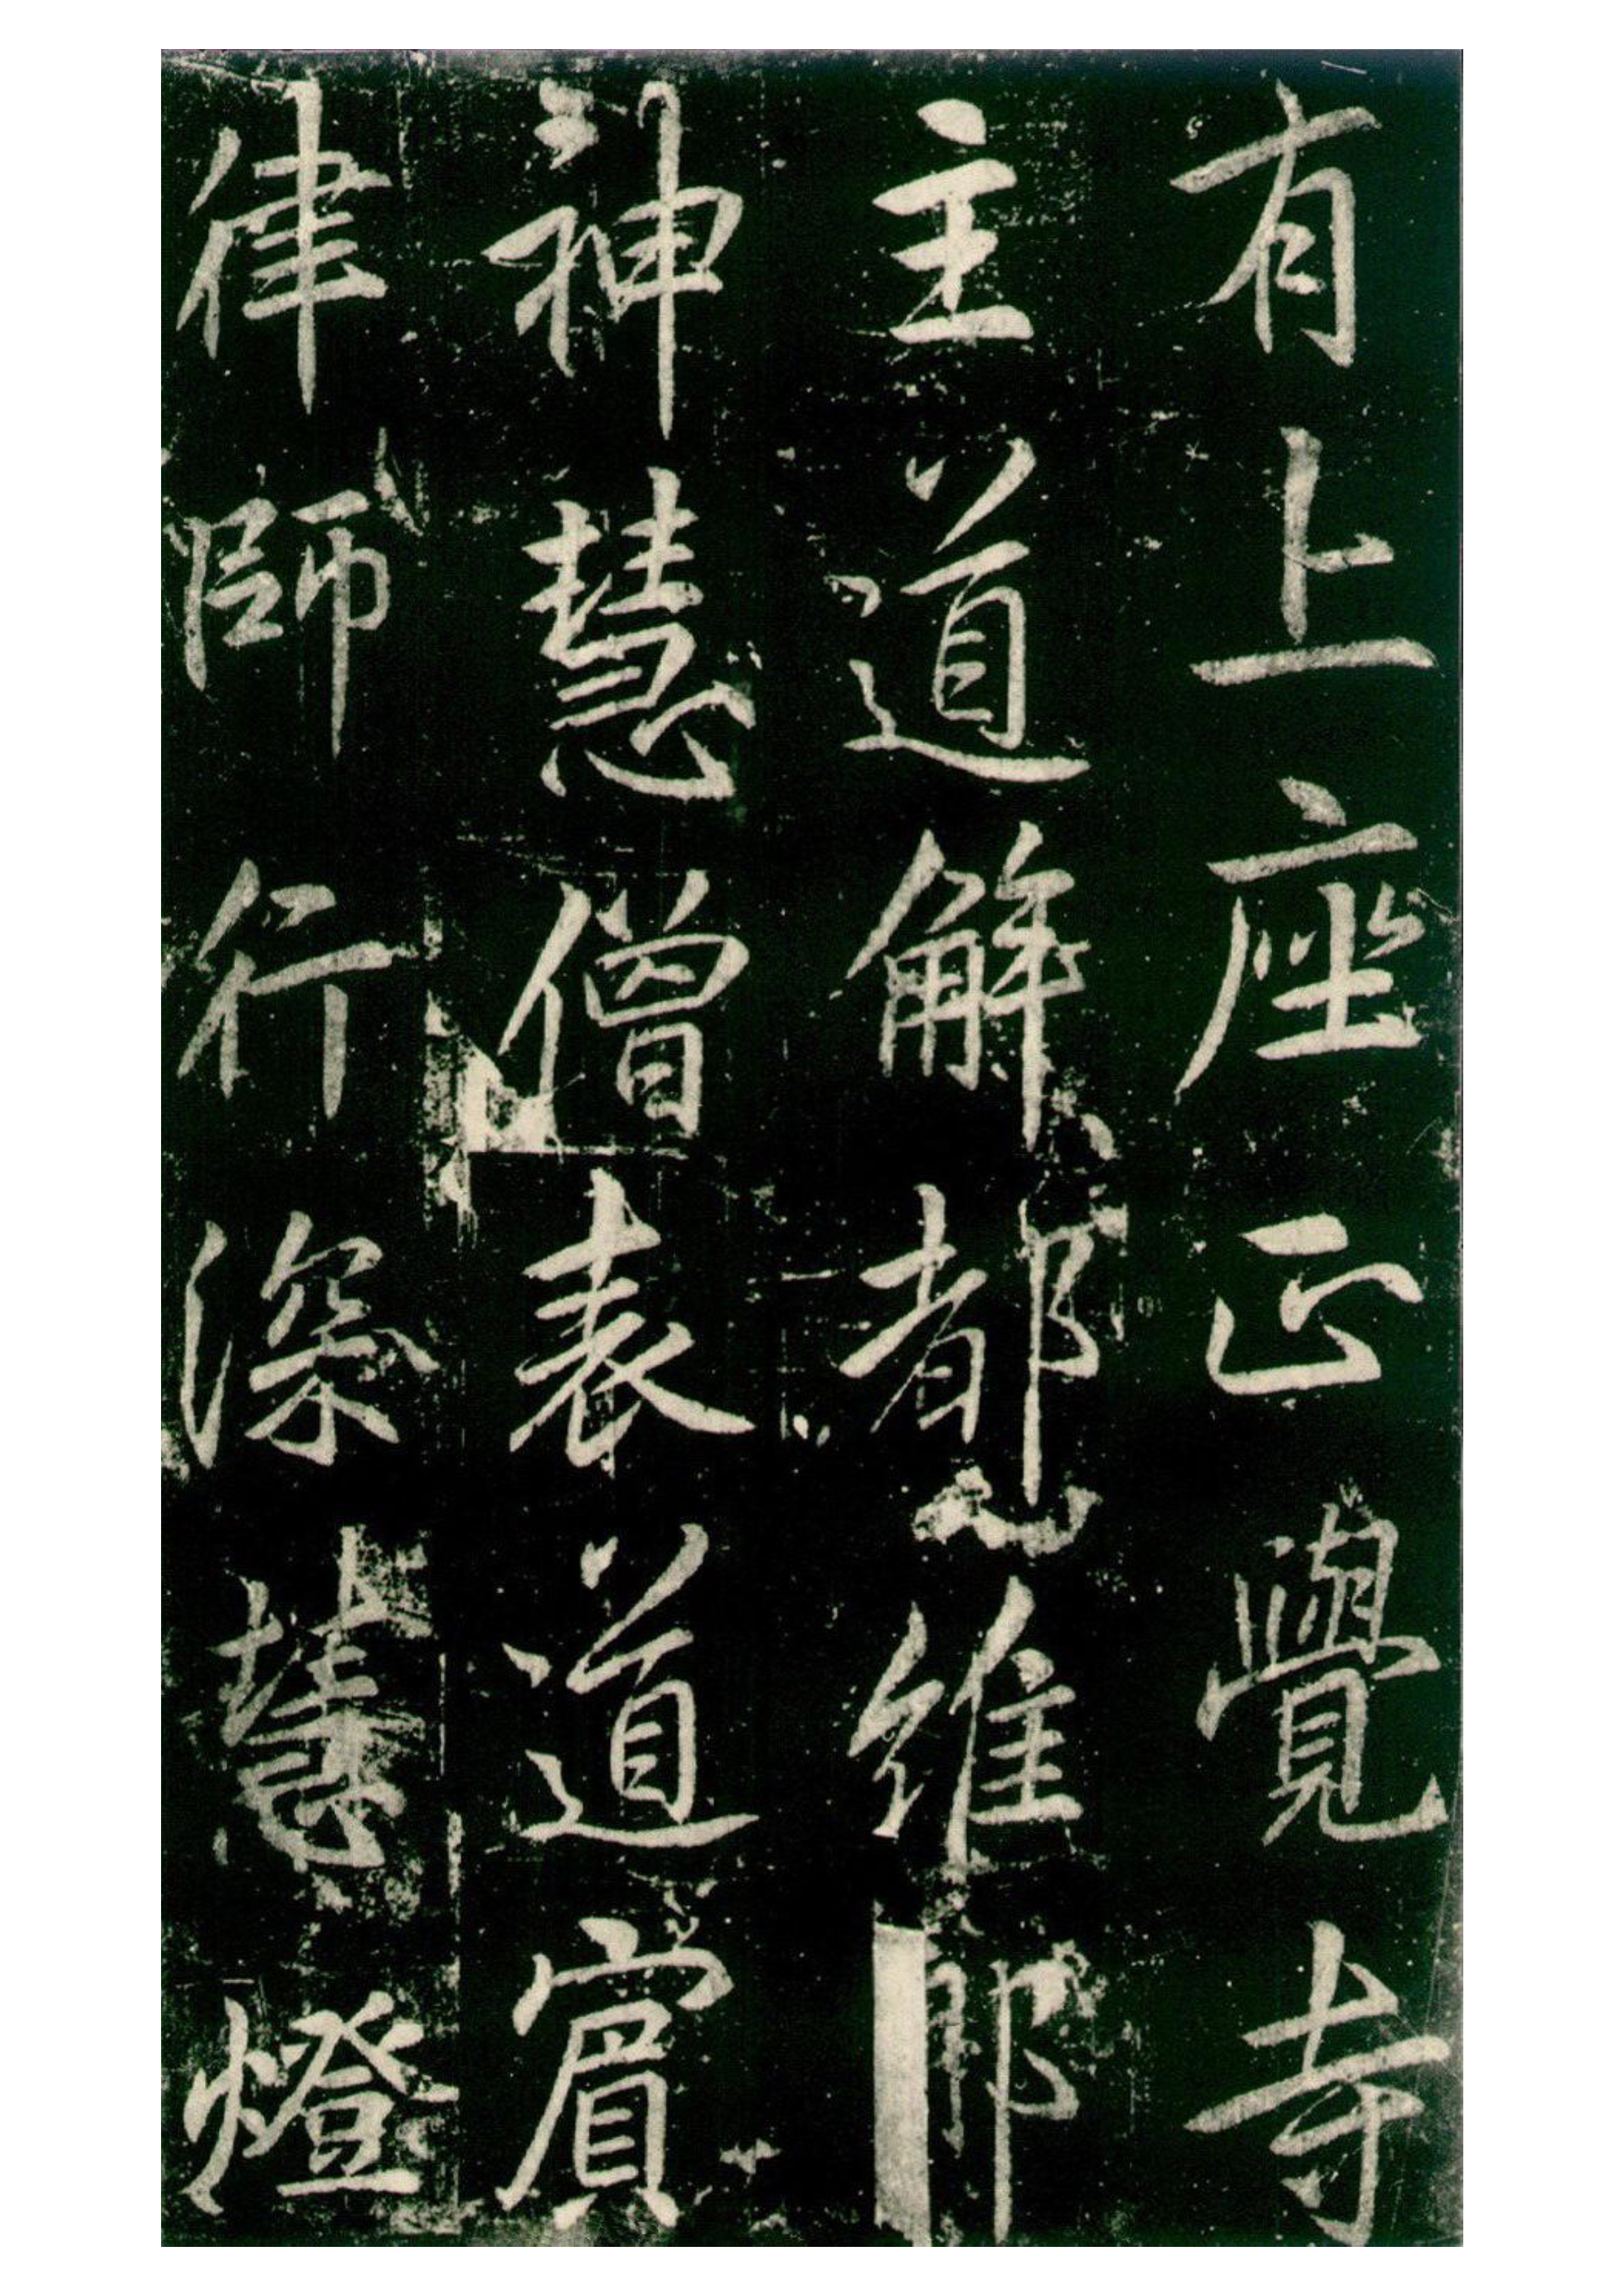 有上座正覺寺
主道解都維那
神慧僧表道賔
律師行深慧燈